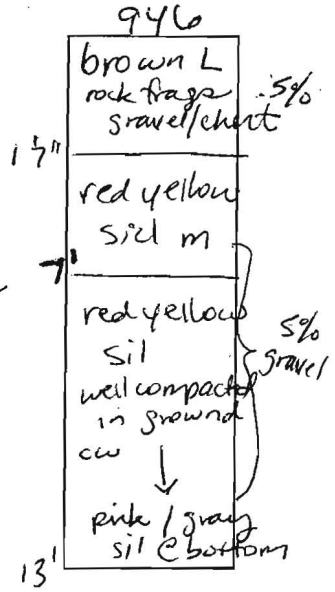 946
brown L
rock frags .5%
gravel/chert
17"
red yellow
sicl m
7'
red yellow
sil
5%
gravel
well compacted
in ground
cw
pink / gray
sil @ bottom
13'